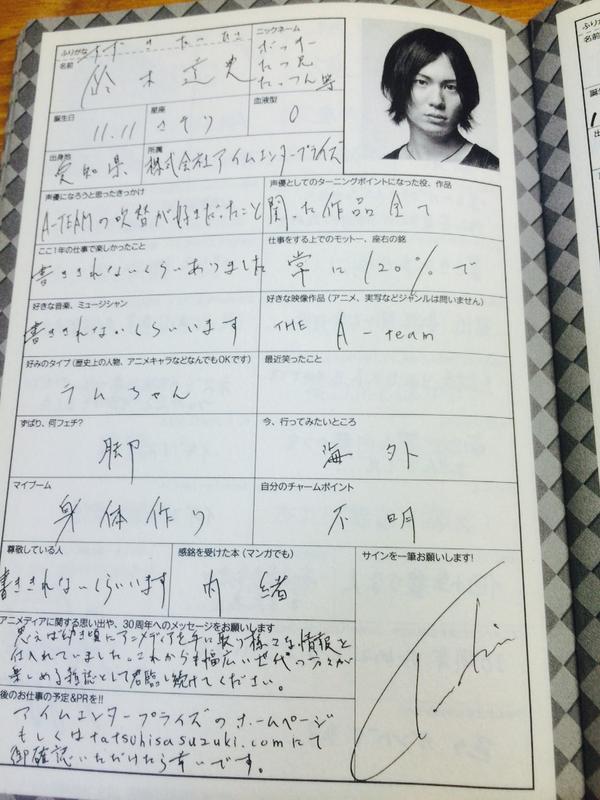 ふりがな すず き たつ ひさ
名前 鈴木達央
ニックネーム
たつ兄
たっつん 等
誕生日 11.11
星座 さそり
血液型 O
出身地 愛知県
所属 株式会社アイムエンタープライズ
声優になろうと思ったきっかけ
A-TEAMの吹替が好きだったこと
声優としてのターニングポイントになった役、作品
関った作品全て
ここ1年の仕事で楽しかったこと
書ききれないくらいありました
仕事をする上でのモットー、座右の銘
常に120%で
好きな音楽、ミュージシャン
書ききれないくらいいます
好きな映像作品(アニメ、実写などジャンルは問いません)
THE A-team
好みのタイプ(歴史上の人物、アニメキャラなどなんでもOKです)
ラムちゃん
最近笑ったこと
ずばり、何フェチ?
脚
今、行ってみたいところ
海外
マイブーム
身体作り
自分のチャームポイント
不明
尊敬している人
書ききれないくらいいます
感銘を受けた本(マンガでも)
内緒
サインを一筆お願いします!
アニメディアに関する思い出や、30周年へのメッセージをお願いします
思えば幼き頃にアニメディアを手に取り様々な情報を
仕入れていました。これからも幅広い世代の方々が
楽しめる雑誌として君臨し続けてください。
後のお仕事の予定&PRを!!
アイムエンタープライズのホームページ
もしくはtatsuhisasuzuki.comにて
御確認いただけたら幸いです。